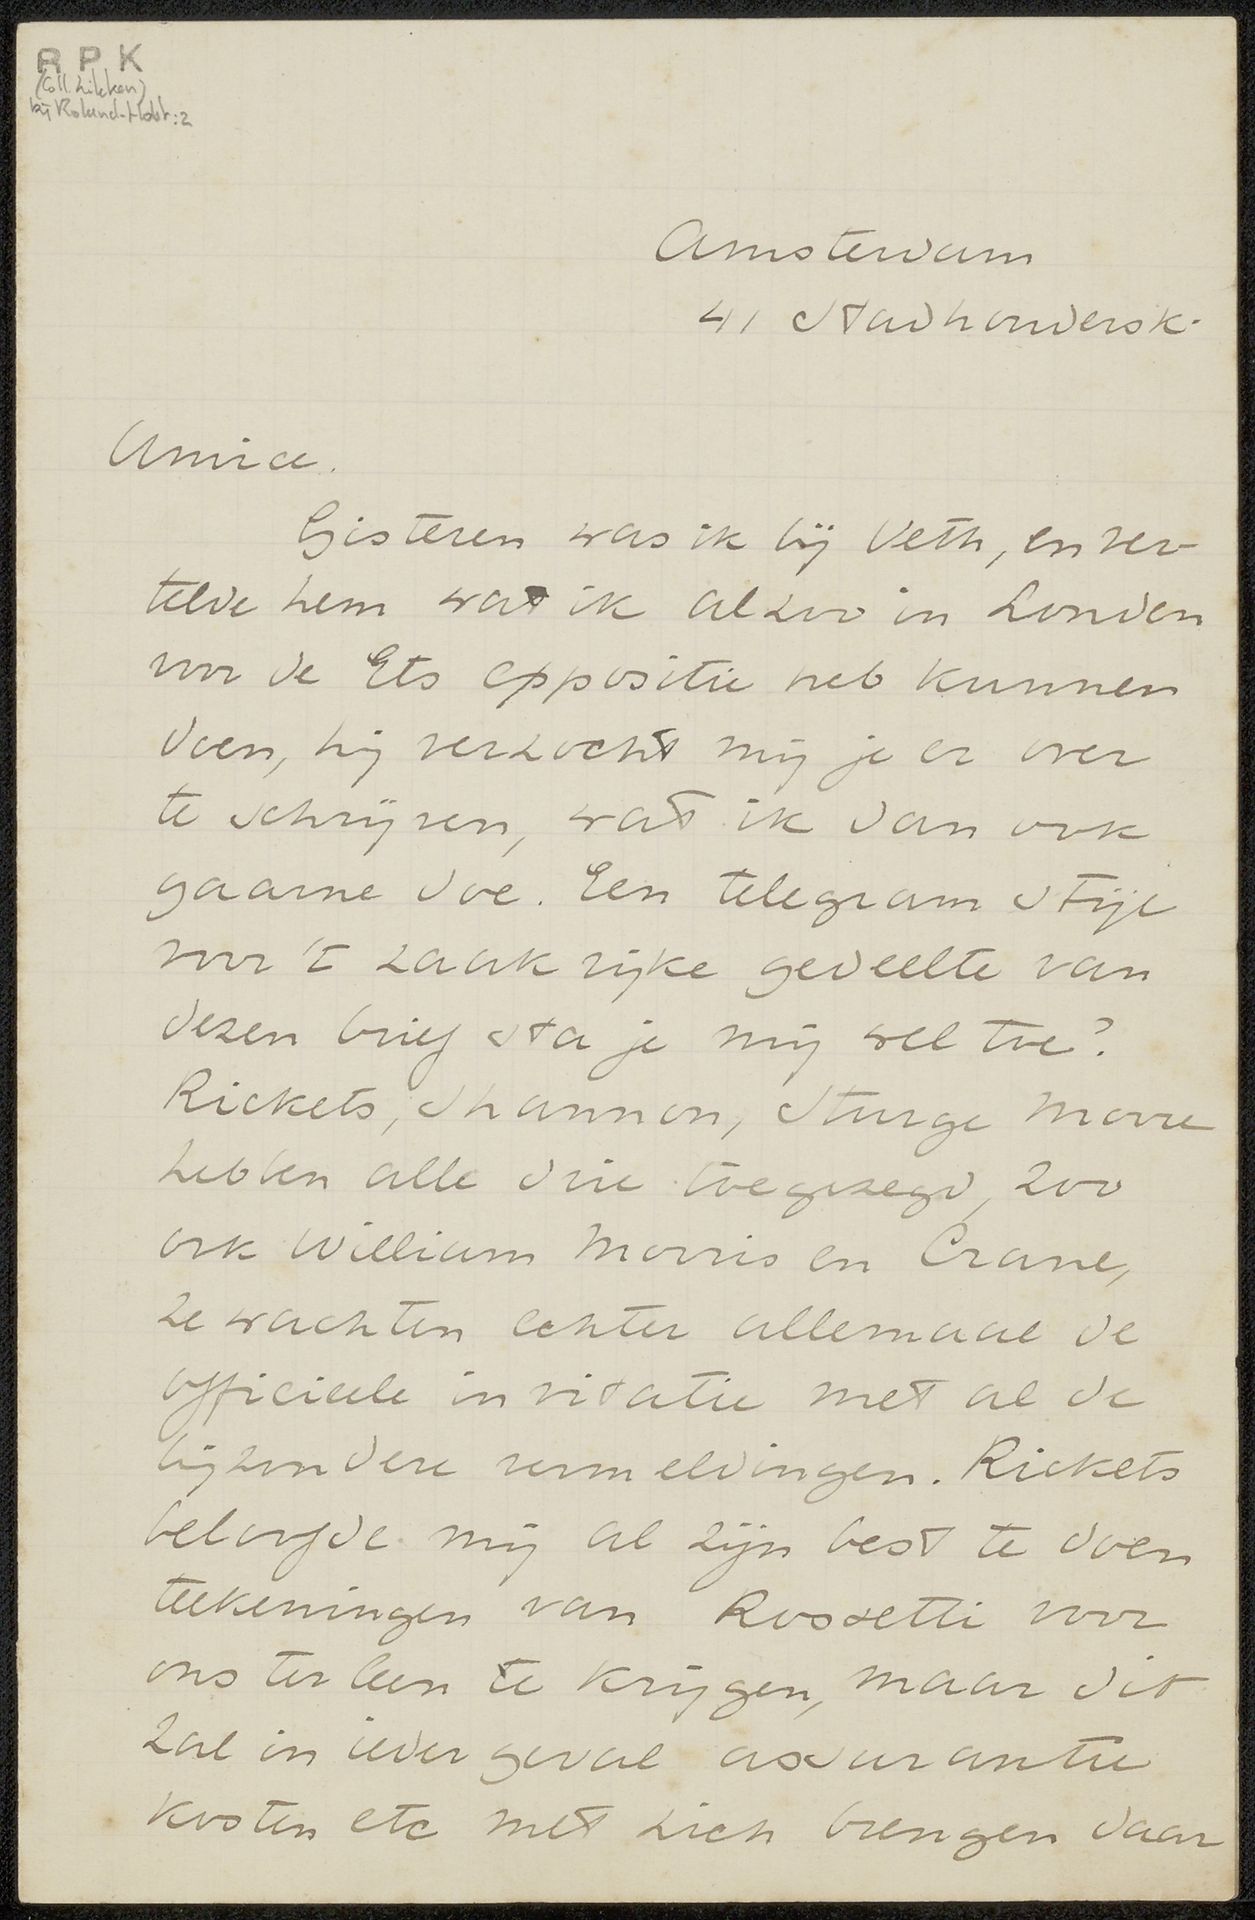 R P K
(Coll. Zilcken)
bij Roland-Holst: 2
Amsterdam
41 Stadhoudersk.
Amice.
Gisteren was ik bij Veth, en ver-
telde hem wat ik alzoo in Londen
voor de Ets oppositie heb kunnen
doen, hij verzocht mij je er over
te schrijven, wat ik dan ook
gaarne doe. Een telegram stijl
voor 't zaakrijke gedeelte van
dezen brief sta je mij wel toe?
Rickets, Shannon, Sturge Moore
hebben alle drie toegezegd, zoo
ook William Morris en Crane,
ze wachten echter allemaal de
officieele invitatie met al de
bijzondere vermeldingen. Rickets
beloofde mij al zijn best te doen
teekeningen van Rossetti voor
ons ter leen te krijgen, maar dit
zal in ieder geval assurantie
kosten etc met zich brengen daar